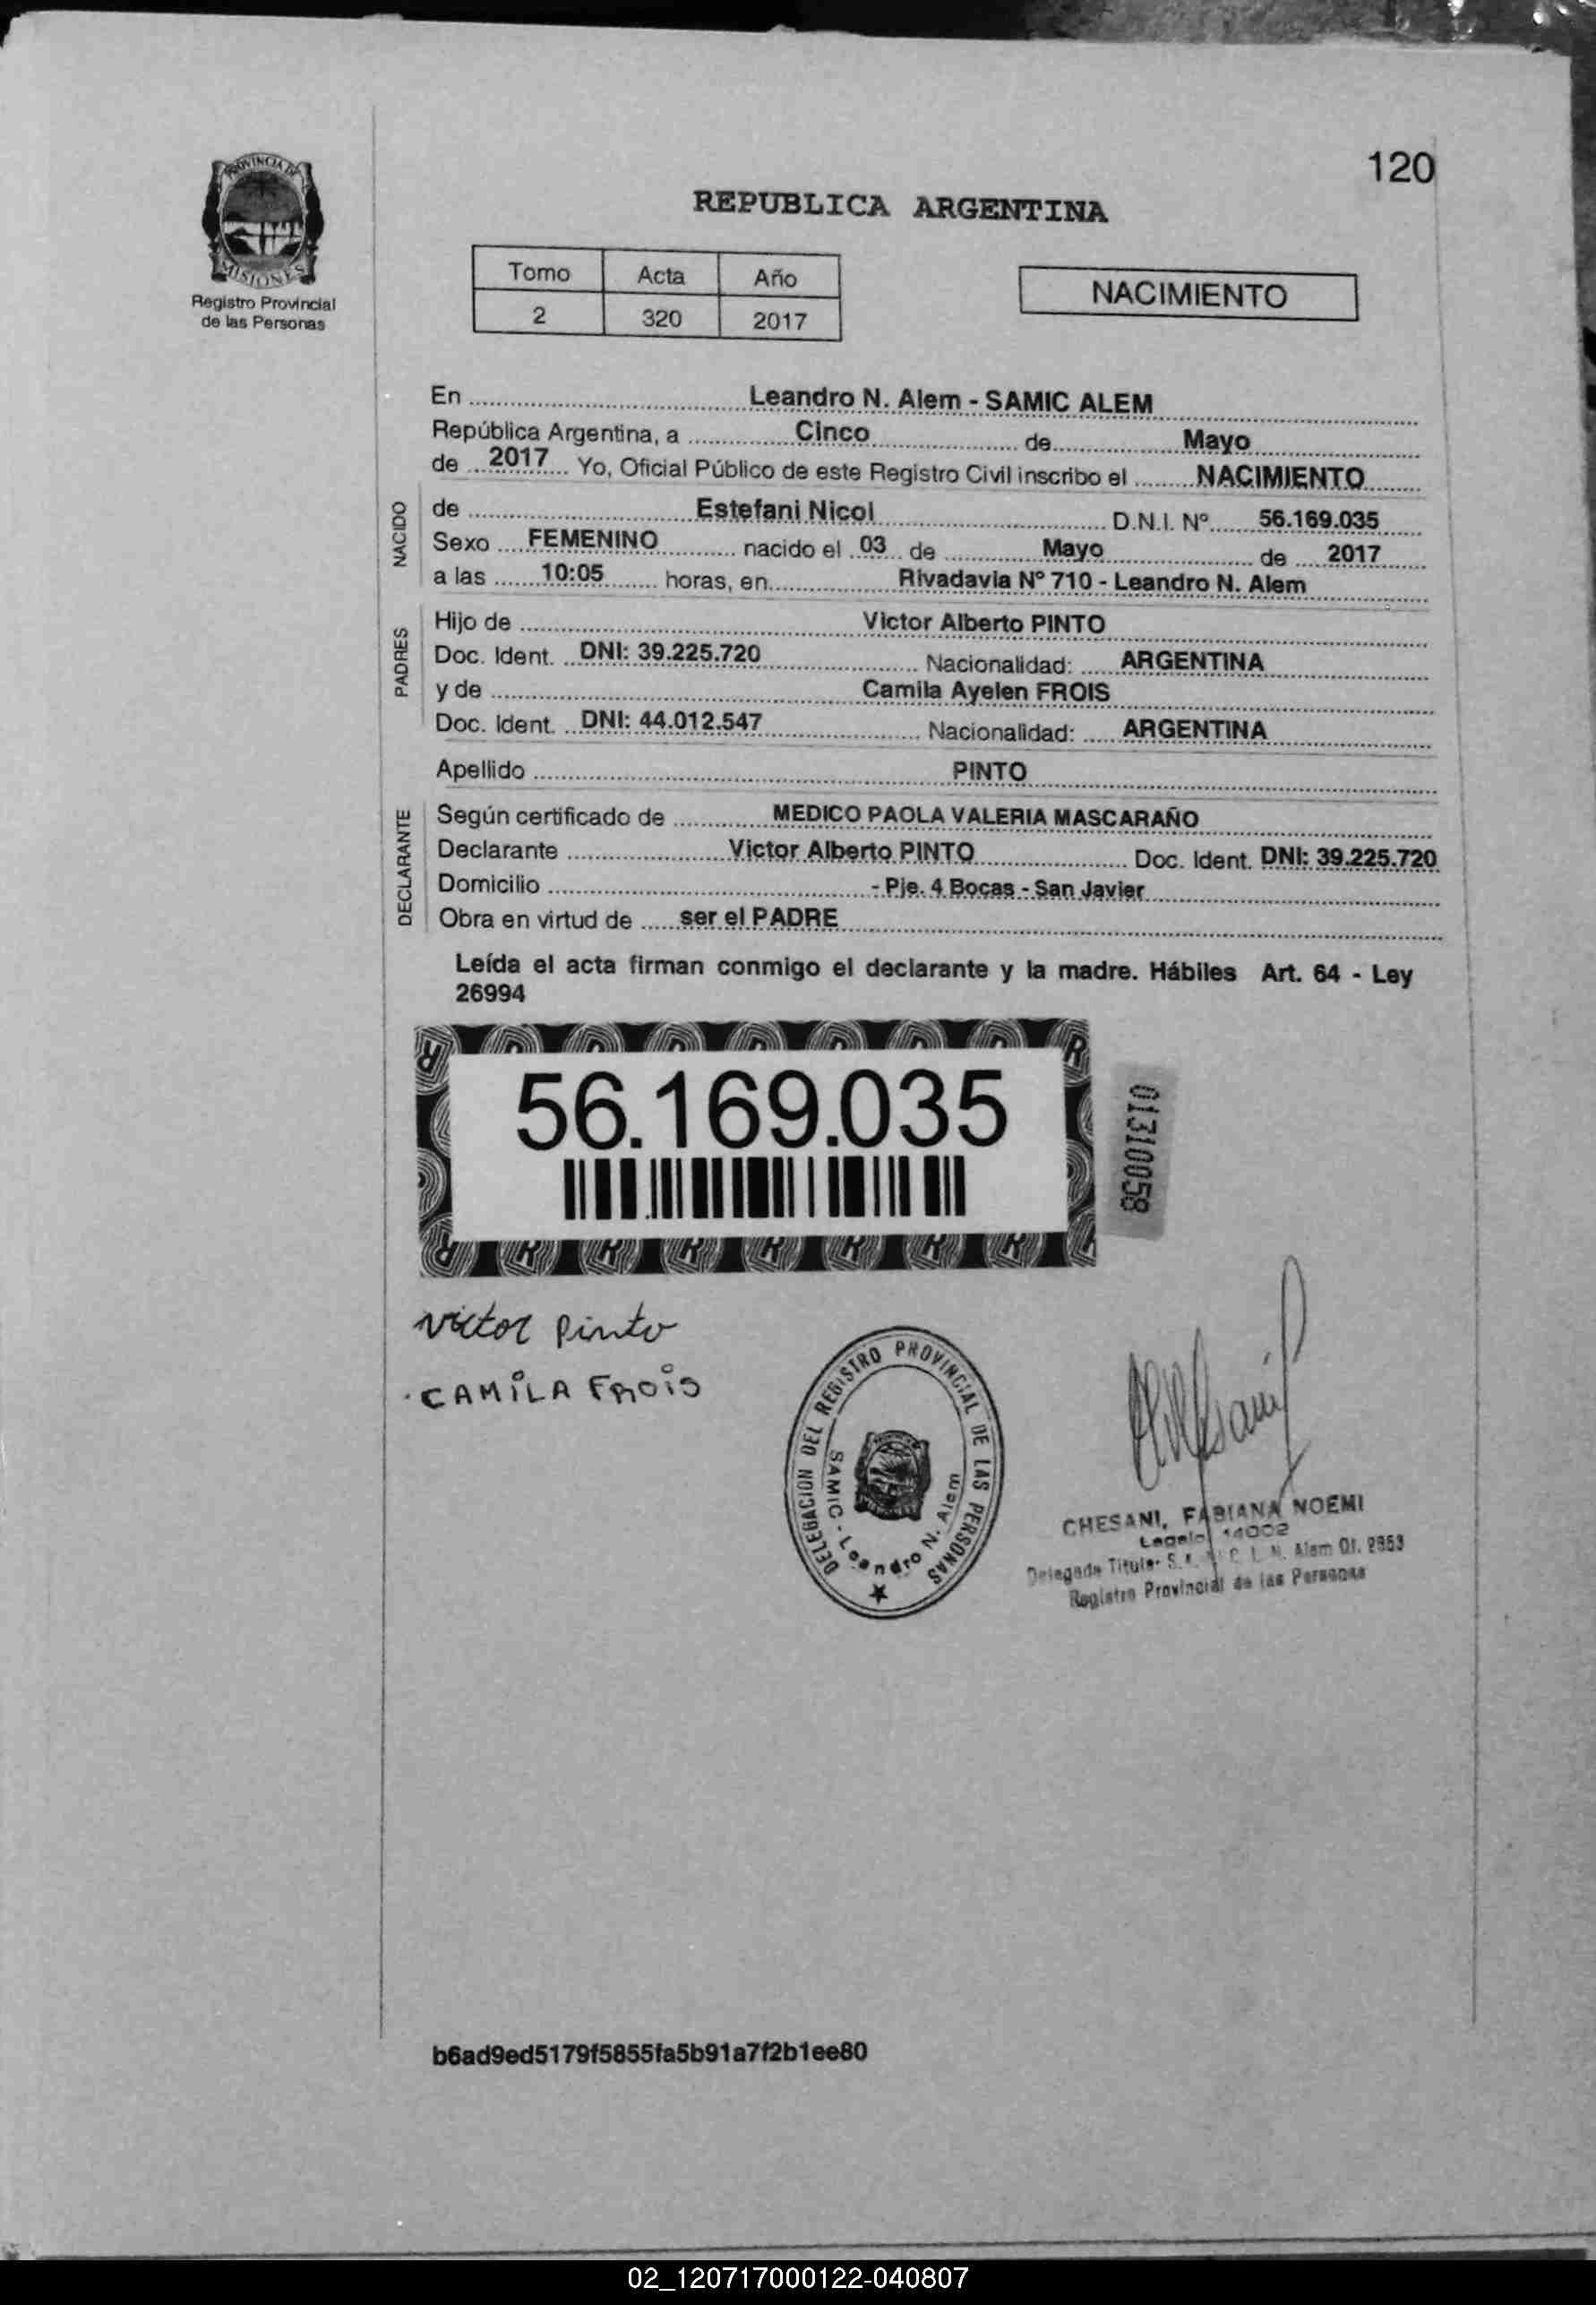 120
PROVINCIA DE
MISIONES
Registro Provincial
de las Personas
REPUBLICA ARGENTINA
Tomo Acta Año
2 320 2017
NACIMIENTO
En Leandro N. Alem - SAMIC ALEM
República Argentina, a Cinco de Mayo
de 2017 Yo, Oficial Público de este Registro Civil inscribo el NACIMIENTO
NACIDO
de Estefani Nicol D.N.I. Nº 56.169.035
Sexo FEMENINO nacido el 03 de Mayo de 2017
a las 10:05 horas, en Rivadavia Nº 710 - Leandro N. Alem
PADRES
Hijo de Victor Alberto PINTO
Doc. Ident. DNI: 39.225.720 Nacionalidad: ARGENTINA
y de Camila Ayelen FROIS
Doc. Ident. DNI: 44.012.547 Nacionalidad: ARGENTINA
Apellido PINTO
DECLARANTE
Según certificado de MEDICO PAOLA VALERIA MASCARAÑO
Declarante Victor Alberto PINTO Doc. Ident. DNI: 39.225.720
Domicilio - Pje. 4 Bocas - San Javier
Obra en virtud de ser el PADRE
Leída el acta firman conmigo el declarante y la madre. Hábiles Art. 64 - Ley
26994
56.169.035
01310058
victor pinto
CAMILA FROIS
DELEGACION DEL REGISTRO PROVINCIAL DE LAS PERSONAS
SAMIC - Leandro N. Alem
CHESANI, FABIANA NOEMI
Legajo 14002
Delegada Titular L. N. Alem Of. 2853
Registro Provincial de las Personas
b6ad9ed5179f5855fa5b91a7f2b1ee80
02_120717000122-040807